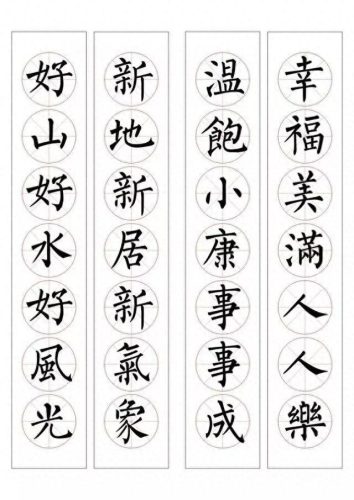 幸福美滿人人樂
温飽小康事事成
新地新居新氣象
好山好水好風光